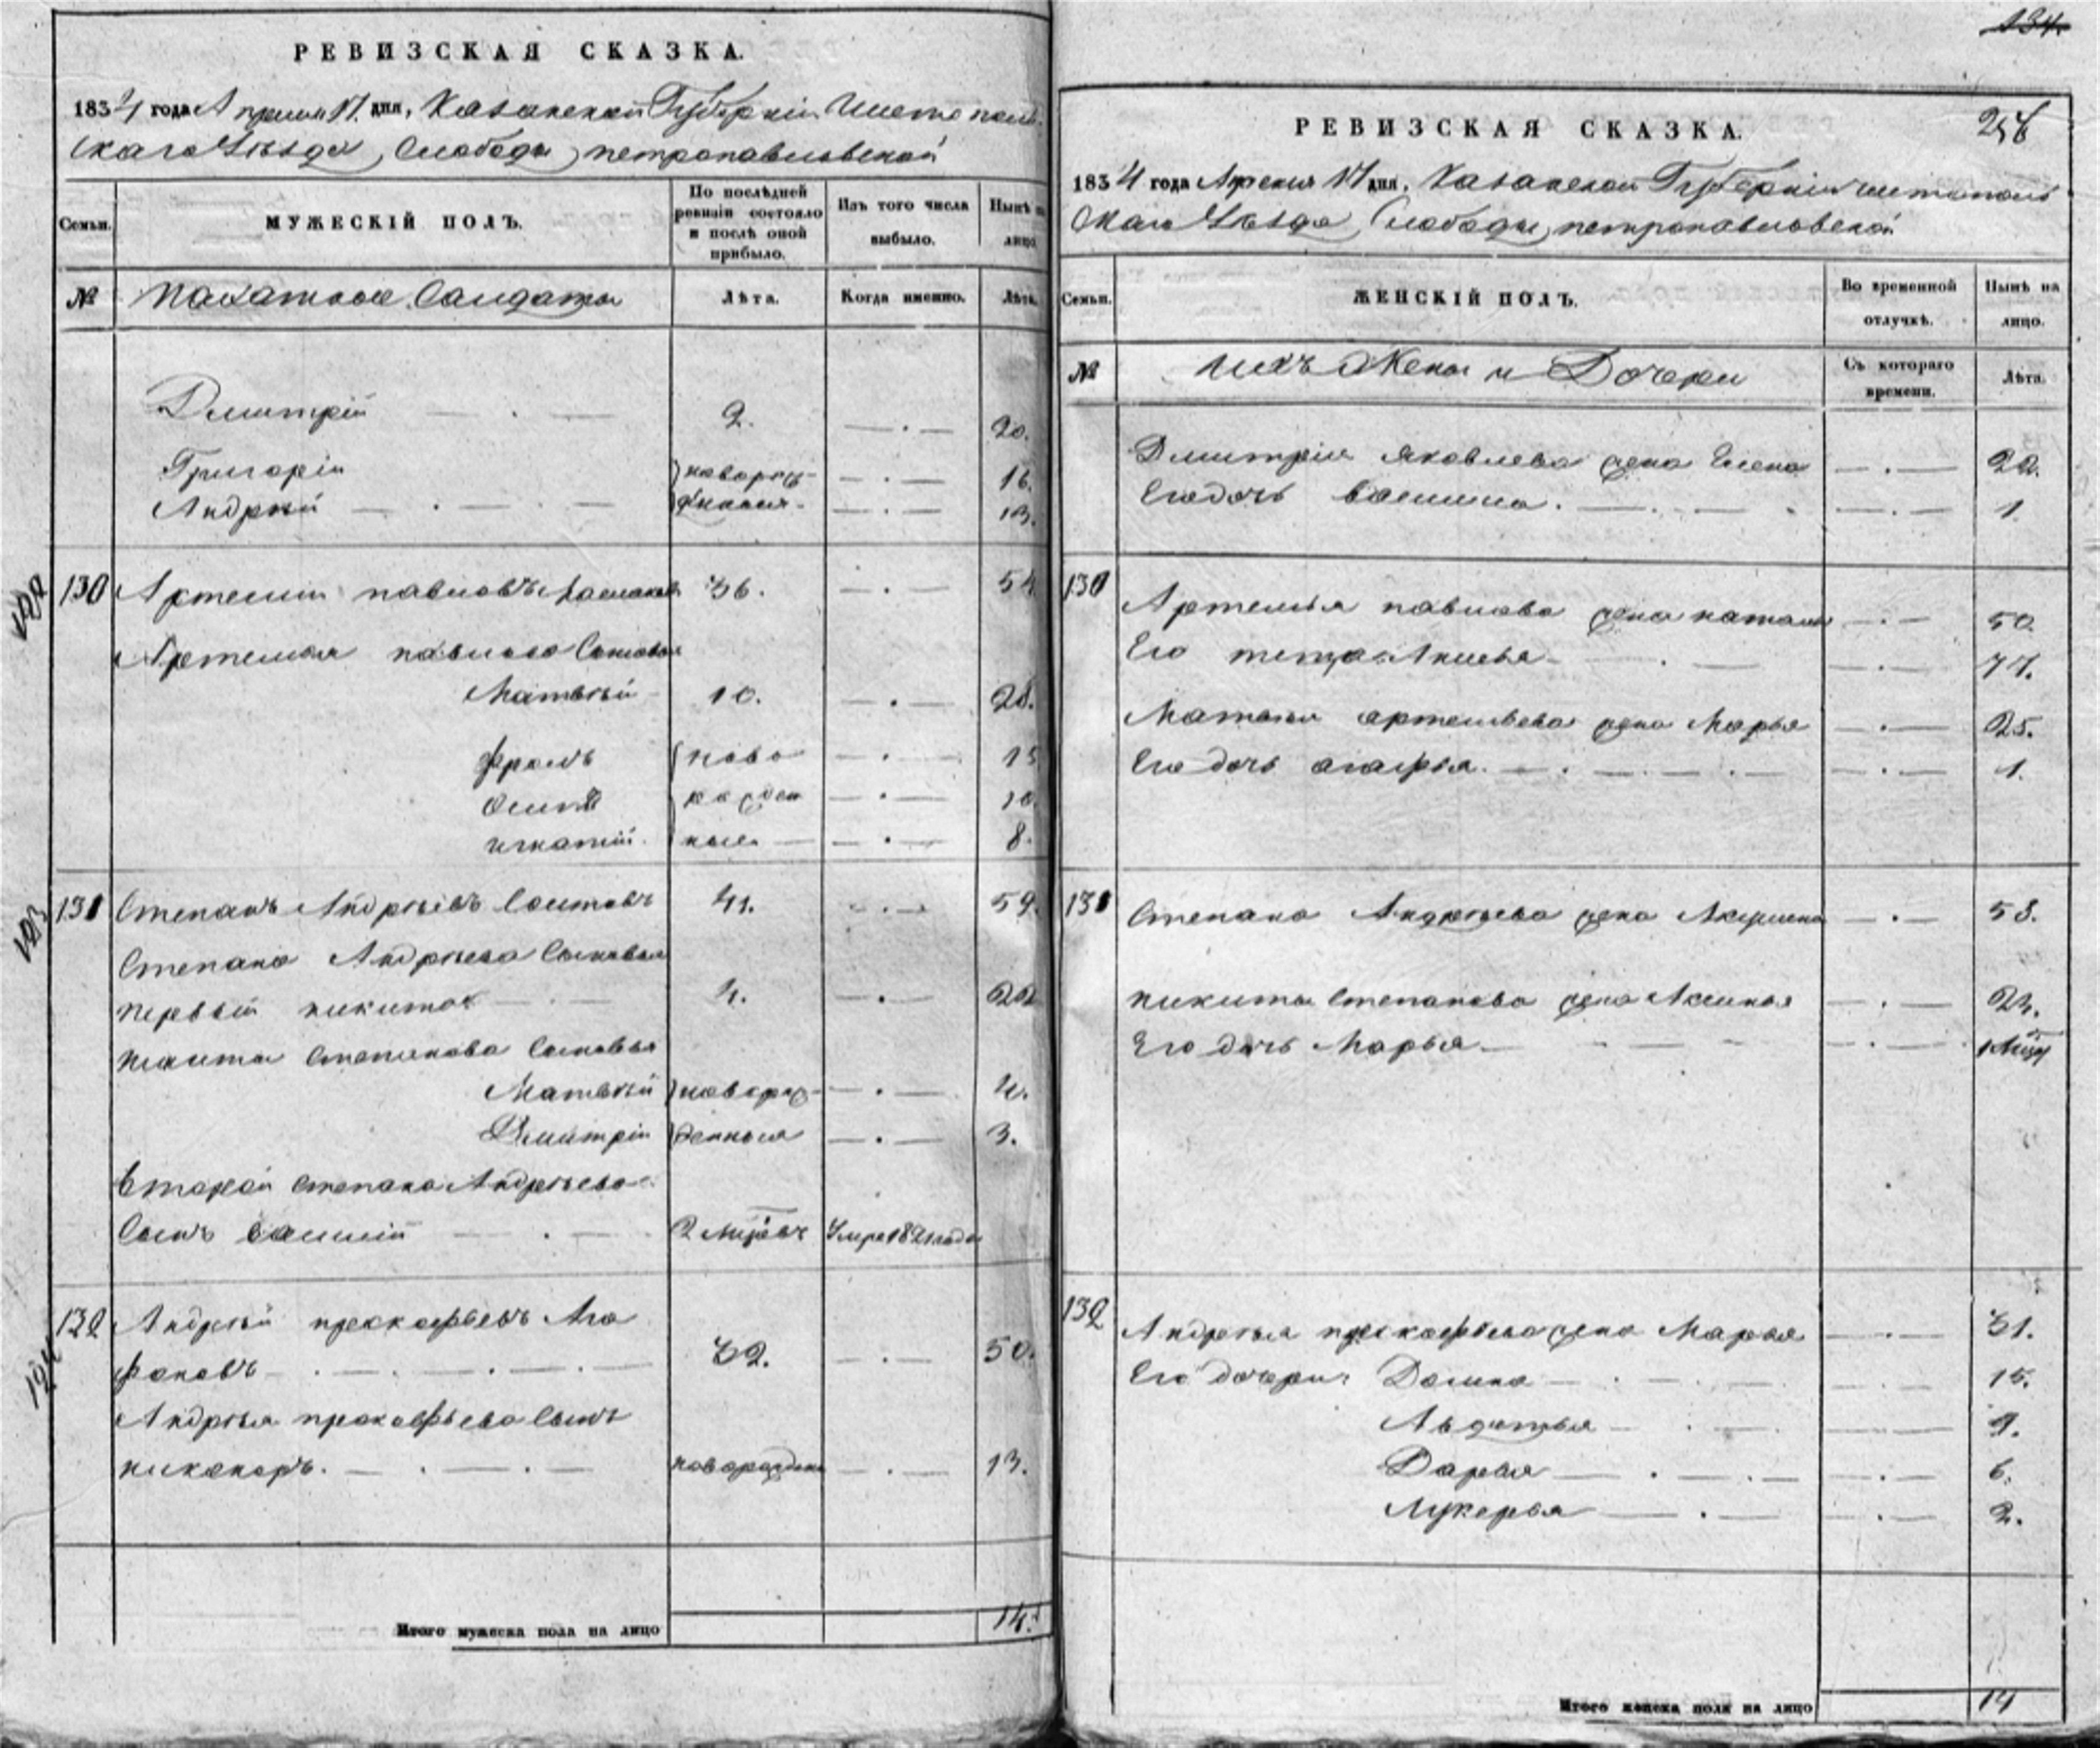 РЕВИЗСКАЯ СКАЗКА.
1834 года Апреля 17 дня, Казанской Губерніи Чистополь
скаго Уѣзда, Слободы петропавловской
Семьи.
МУЖЕСКІЙ ПОЛЪ.
По послѣдней ревизіи состояло и послѣ оной прибыло.
Изъ того числа выбыло.
Нынѣ на лицо
№
пахатные Салдаты
Лѣта.
Когда именно.
Лѣта.
Дмитрій 2. 20.
Григорій новорож 16.
Андрей денныя 13.
122
130 Артемий павловъ 36. 54
Артемья павлова Сыновья
Матвѣй 10. 28.
Фролъ ново 15
Осипъ рожден 10.
игнатій ные 8.
123
131 Степанъ Андрѣевъ Саитовъ 41. 59.
Степана Андрѣева Сыновья
первый никита 4. 22
никиты Степанова Сыновья
Матвѣй новорож 4.
Дмитрій денныя 3.
второй Степана Андрѣева
Сынъ василій 2 Умре 1821 года
124
132 Андрѣй прокофьевъ Ага
фоновъ 32. 50.
Андрѣя прокофьева Сынъ
никаноръ. новорожден 13.
Итого мужеска пола на лицо 14.
134.
256
РЕВИЗСКАЯ СКАЗКА.
1834 года Апреля 17 дня, Казанской Губерніи чистополь
скаго Уѣзда, Слободы петропавловской
Семьи.
ЖЕНСКІЙ ПОЛЪ.
Во временной отлучкѣ.
Нынѣ на лицо.
№
ихъ Жены и Дочери
Съ котораго времени.
Лѣта.
Дмитрія Яковлева жена Елена 22.
Его дочь васили 1.
130
Артемья павлова жена наталья 50.
Его теща Акилина 77.
Матвѣя артемьева жена Марья 25.
Его дочь агафья. 1.
131 Степана Андрѣева жена Акулина 58.
никиты Степанова жена Аксинья 24.
Его дочь Марья
132
Андрѣя прокофьева жена Марья 31.
Его дочери Домна 15.
Авдотья 9.
Дарья 6.
Лукерья 2.
Итого женска пола на лицо 14